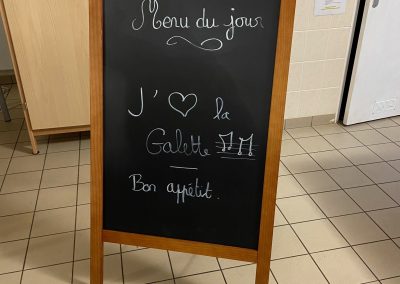 Menu du jour
J'♡ la
Galette
Bon appétit.